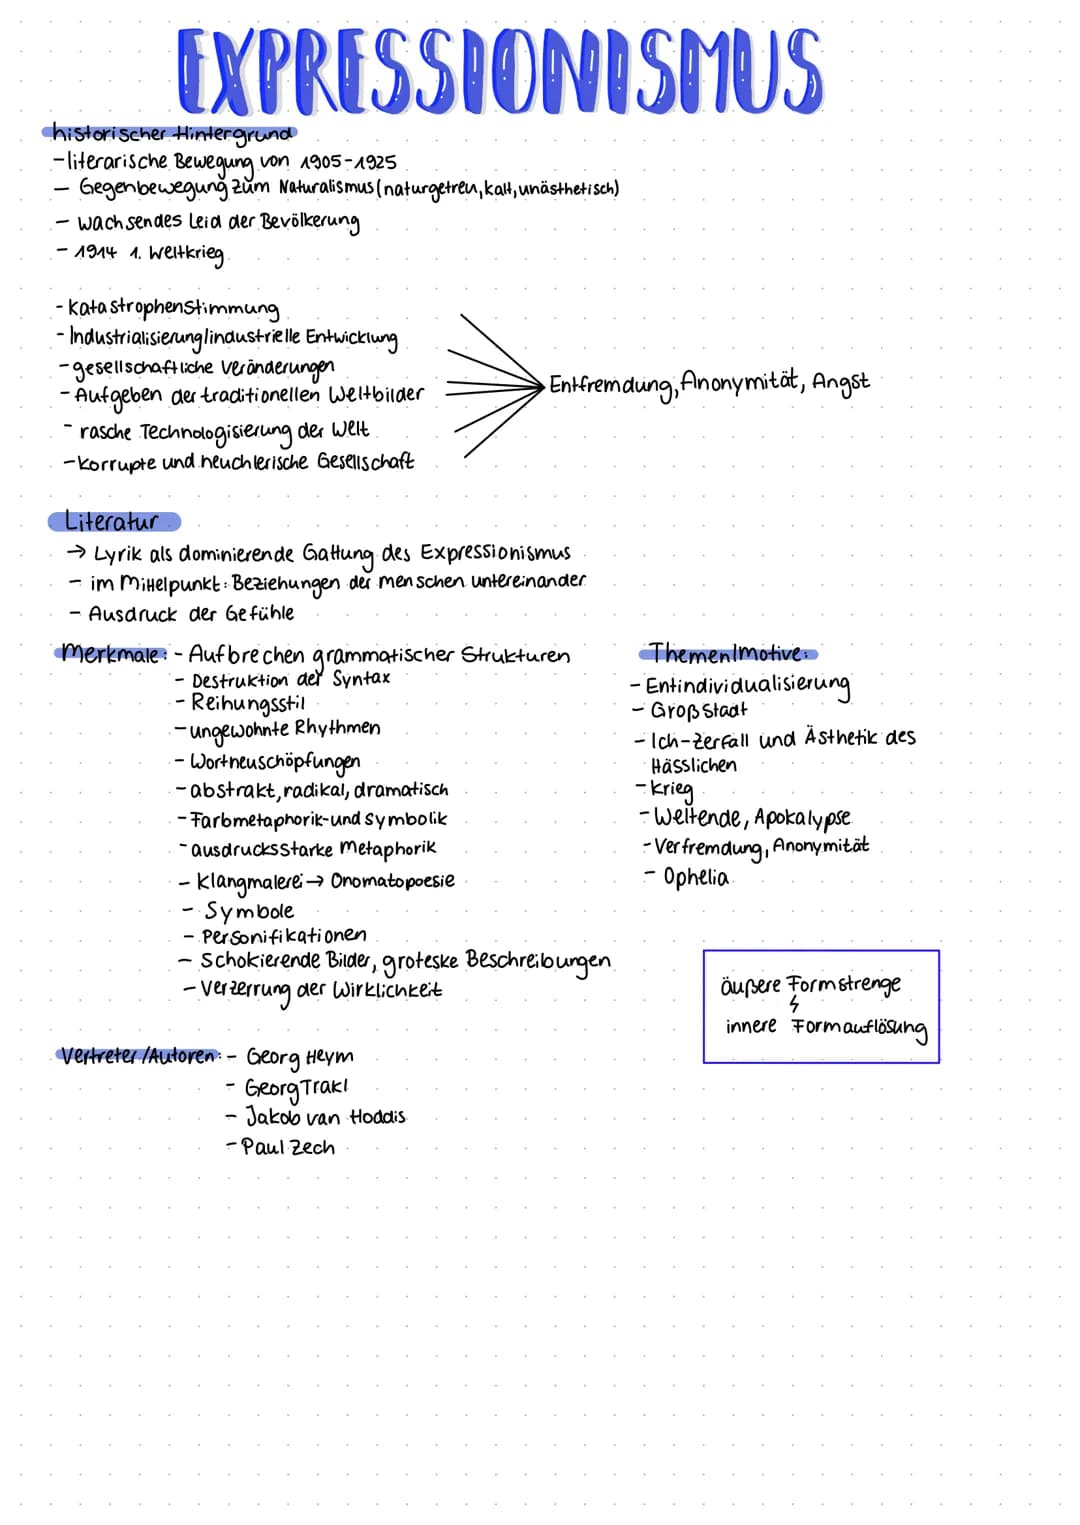 EXPRESSIONISMUS
historischer Hintergrund
-literarische Bewegung von 1905-1925
- Gegenbewegung zum Naturalismus (naturgetreu, kalt, unästhetisch)
- wachsendes Leid der Bevölkerung
- 1914 1. Weltkrieg
- Katastrophenstimmung
- Industrialisierung/industrielle Entwicklung
- gesellschaftliche Veränderungen
- Aufgeben der traditionellen Weltbilder
- rasche Technologisierung der Welt
- Korrupte und heuchlerische Gesellschaft
Entfremdung, Anonymität, Angst
Literatur
→ Lyrik als dominierende Gattung des Expressionismus
- im Mittelpunkt: Beziehungen der menschen untereinander
- Ausdruck der Gefühle
Merkmale: - Aufbrechen grammatischer Strukturen
- Destruktion der Syntax
- Reihungsstil
- ungewohnte Rhythmen
- Wortneuschöpfungen
- abstrakt, radikal, dramatisch
- Farbmetaphorik-und symbolik
- ausdrucksstarke Metaphorik
- Klangmalerei → Onomatopoesie
- Symbole
- Personifikationen
- Schokierende Bilder, groteske Beschreibungen
- Verzerrung der Wirklichkeit
Themen/motive:
- Entindividualisierung
- Großstadt
- Ich-zerfall und Ästhetik des
Hässlichen
- Krieg
- Weltende, Apokalypse
- Verfremdung, Anonymität
- Ophelia
äußere Formstrenge
↯
innere Formauflösung
Vertreter/Autoren: - Georg Heym
- Georg Trakl
- Jakob van Hoddis
- Paul Zech